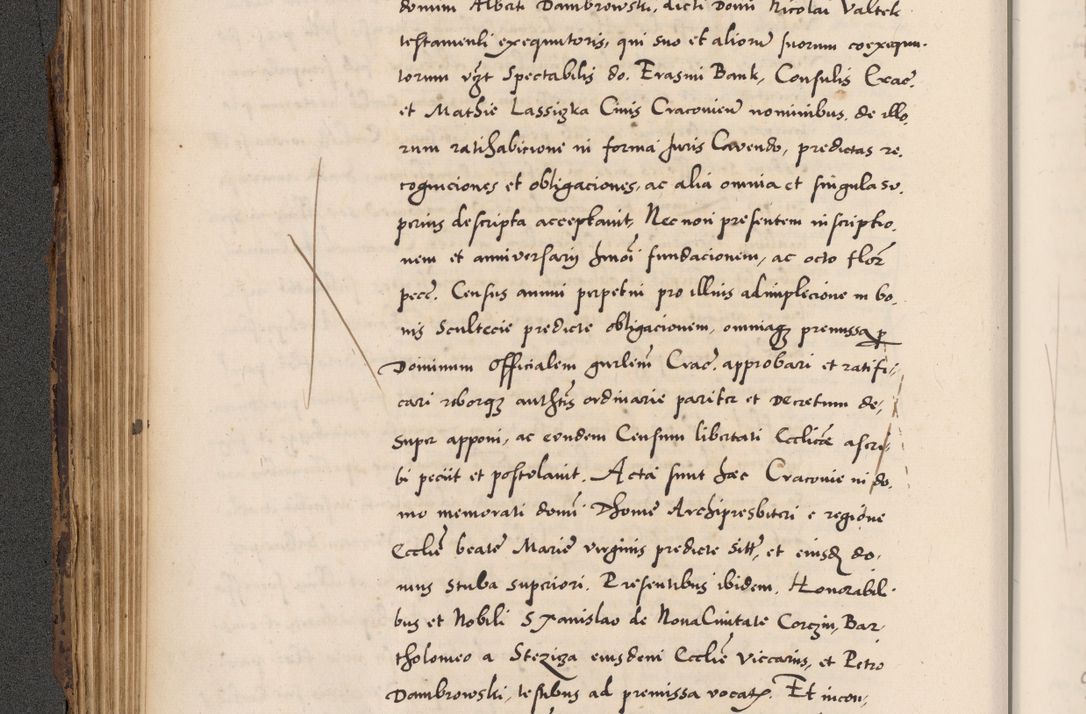 domini Alberti Dambrowski, dicti Domi Nicolai Valtek
testamenti exequutoris, qui suo et alioru suorum coexequu-
torum vgt Spectabilis do. Erasmi Bank, Consulis Crac.
et Mathie Lassigka Civis Cracovien nominibus, de illo.
rum ratihabicione in forma Juris Cavendo, predictas re.
cogniciones et obligaciones, ac alia omnia et singula su.
perius descripta acceptavit, Necnon presentem inscriptio.
nem et anniversarii hmoi fundacionem, ac octo flor
pecc. Census annui perpetui pro illius adimplecione in bo.
nis Scultecie predicte obligacionem, omniaq premissa p
Dominum Officialem gnrlem Crac. approbari et ratifi-
cari roborq authtis ordinarie pariter et Decretum de-
super apponi, ac eundem Censum libertati Ecclice ascri-
bi peciit et postolavit. Acta sunt hec Cracovie in do.
mo memorati domi Thome Archipresbiteri e regione
Ecclie beate Marie virginis predicte sitt, et eiusd do.
mus stuba superiori. Presentibus ibidem, Honorabili-
bus et Nobili Stanislao de Nova Civitate Corczin, Bar-
tholomeo a Stezicza eiusdem Ecclie viccariis, et Petro
Dambrowski, testibus ad premissa vocat. Et incon-